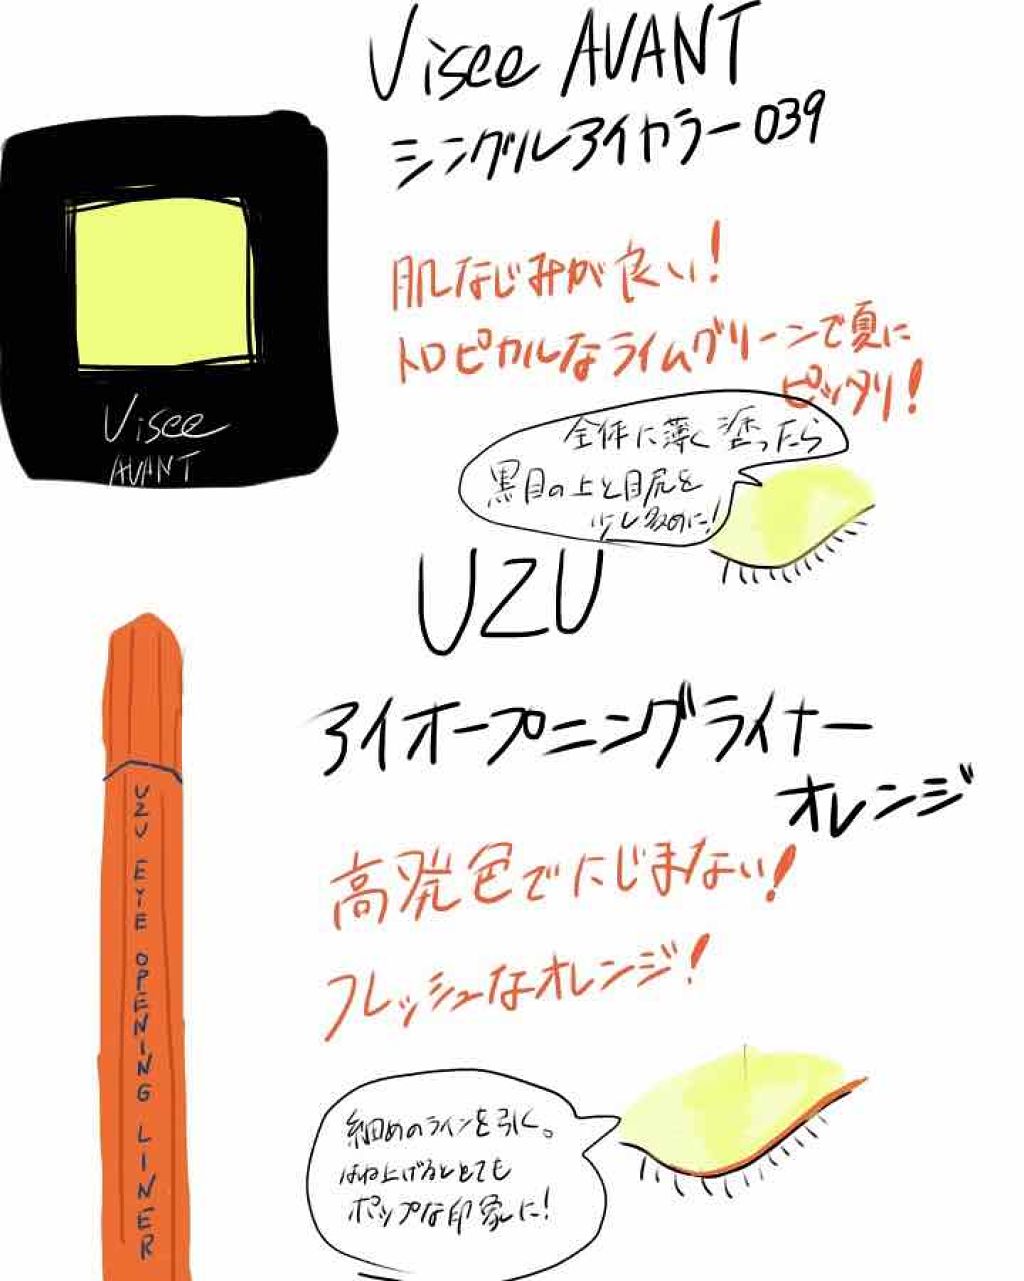 Visee AVANT
シングルアイカラー039
肌なじみが良い!
トロピカルなライムグリーンで夏に
ピッタリ!
Visee
AVANT
全体に薄く塗ったら
黒目の上と目尻を
少し多めに!
UZU
アイオープニングライナー
オレンジ
高発色でにじまない!
フレッシュなオレンジ!
UZU EYE OPENING LINER
細めのラインを引く。
はね上げるととても
ポップな印象に!